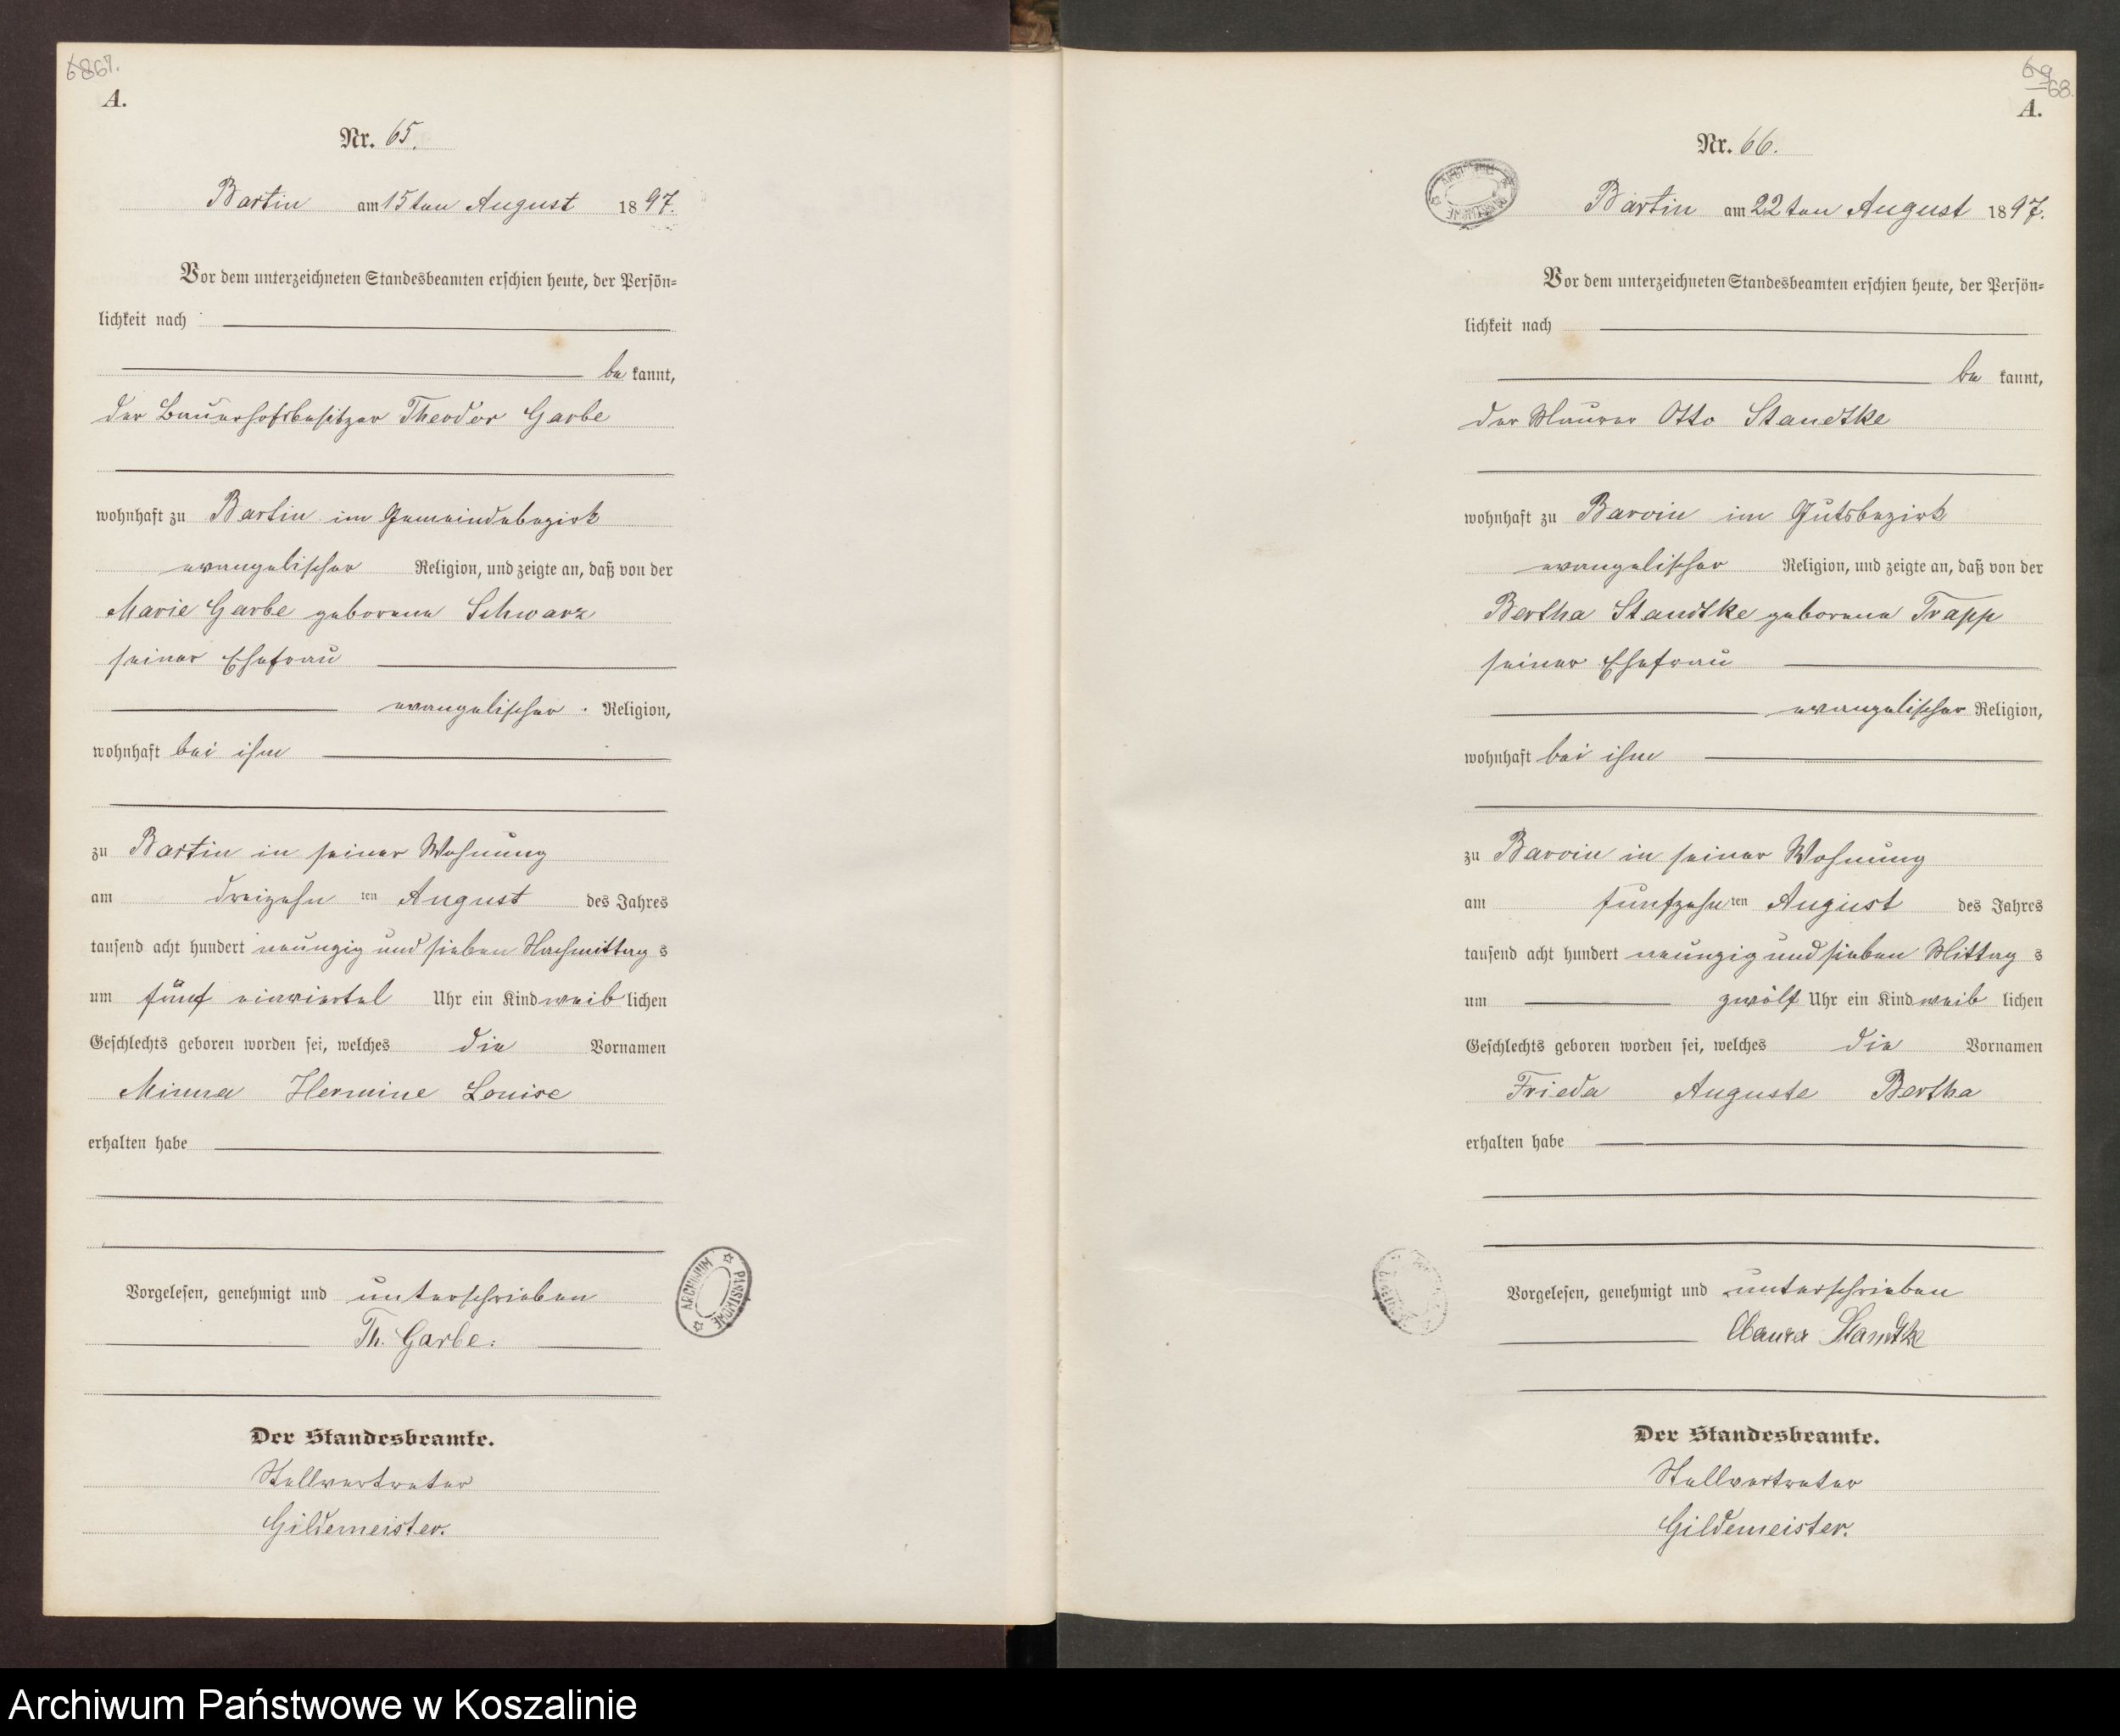 6867.
A.
Nr. 65.
Bartin am 15ten August 1897.
Vor dem unterzeichneten Standesbeamten erschien heute, der Persön-
lichkeit nach
bekannt,
der Bauerhofsbesitzer Theodor Garbe
wohnhaft zu Bartin im Gemeindebezirk
evangelischer Religion, und zeigte an, daß von der
Marie Garbe geborene Schwarz
seiner Ehefrau
evangelischer Religion,
wohnhaft bei ihm
zu Bartin in seiner Wohnung
am dreizehn ten August des Jahres
tausend acht hundert neunzig und sieben Nachmittags
um fünf einviertel Uhr ein Kind weiblichen
Geschlechts geboren worden sei, welches die Vornamen
Minna Hermine Louise
erhalten habe
Vorgelesen, genehmigt und unterschrieben
Th. Garbe.
ARCHIWUM PAŃSTWOWE
Der Standesbeamte.
Stellvertreter
Gildemeister.
69 68.
A.
Nr. 66.
Bartin am 22ten August 1897.
Vor dem unterzeichneten Standesbeamten erschien heute, der Persön-
lichkeit nach
be kannt,
der Maurer Otto Standtke
wohnhaft zu Barvin im Gutsbezirk
evangelischer Religion, und zeigte an, daß von der
Bertha Standtke geborene Trapp
seiner Ehefrau
evangelischer Religion,
wohnhaft bei ihm
zu Barvin in seiner Wohnung
am fünfzehn ten August des Jahres
tausend acht hundert neunzig und sieben Mittags
um zwölf Uhr ein Kind weiblichen
Geschlechts geboren worden sei, welches die Vornamen
Frieda Auguste Bertha
erhalten habe
Vorgelesen, genehmigt und unterschrieben
Standtke
Der Standesbeamte.
Stellvertreter
Gildemeister.
Archiwum Państwowe w Koszalinie